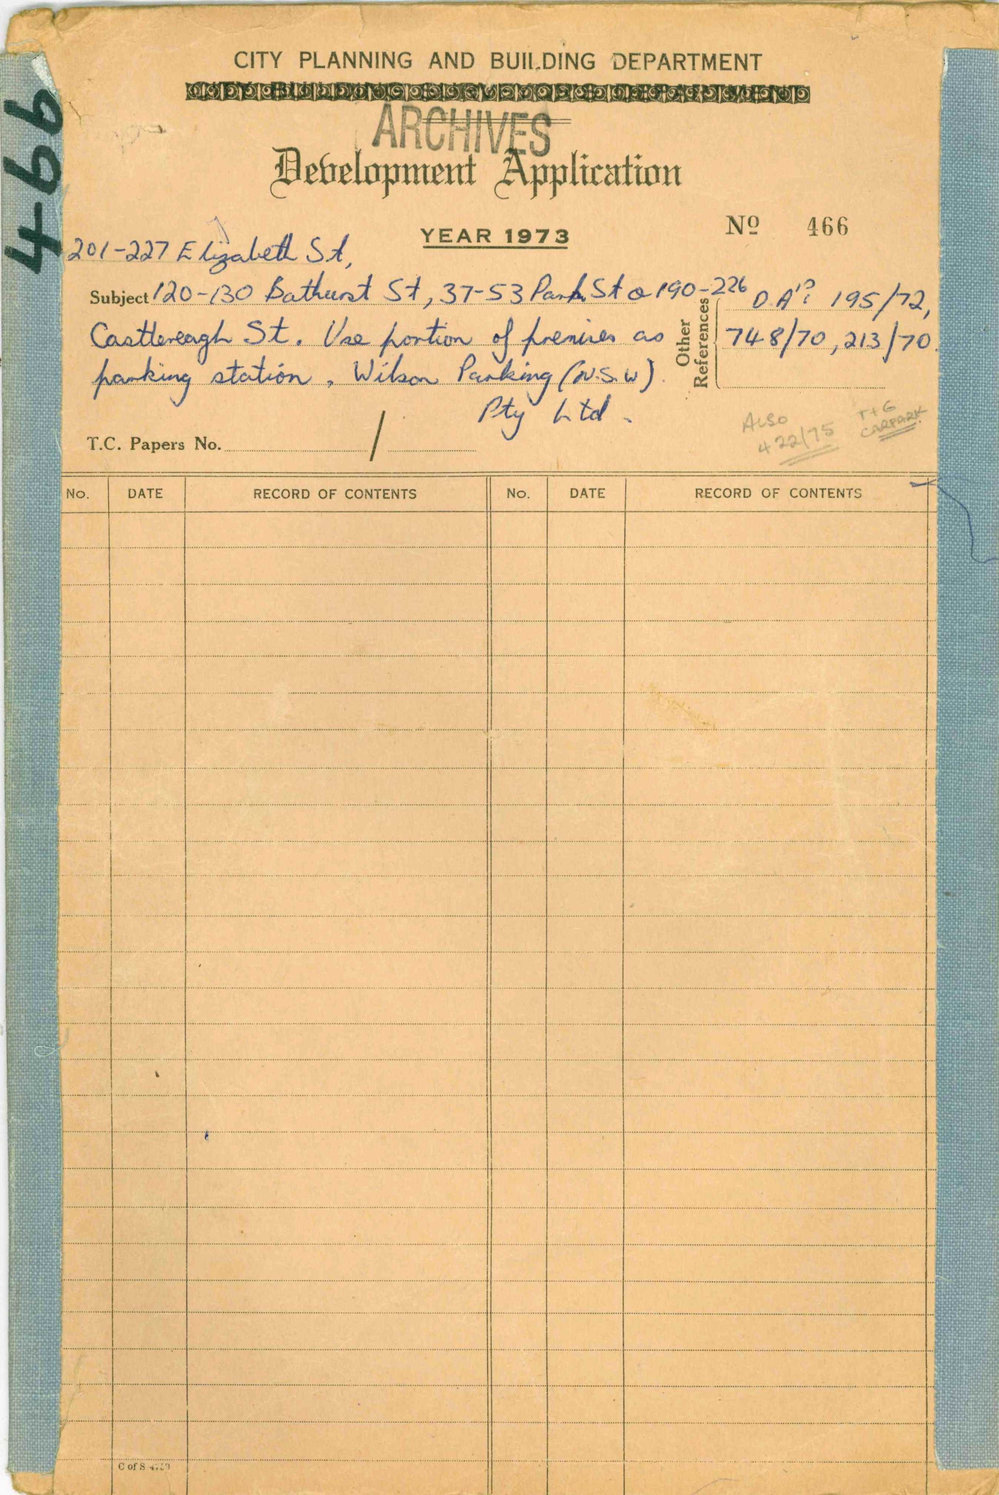 CITY PLANNING AND BUILDING DEPARTMENT
ARCHIVES
Development Application
466
YEAR 1973
No 466
201-227 Elizabeth St,
Subject 120-130 Bathurst St, 37-53 Park St & 190-226
Castlereagh St. Use portion of premises as
parking station. Wilson Parking (N.S.W)
Pty Ltd.
Other References
D.A's: 195/72,
748/70, 213/70.
ALSO
422/75
T+G
CARPARK
T.C. Papers No. /
No. DATE RECORD OF CONTENTS No. DATE RECORD OF CONTENTS
C of S